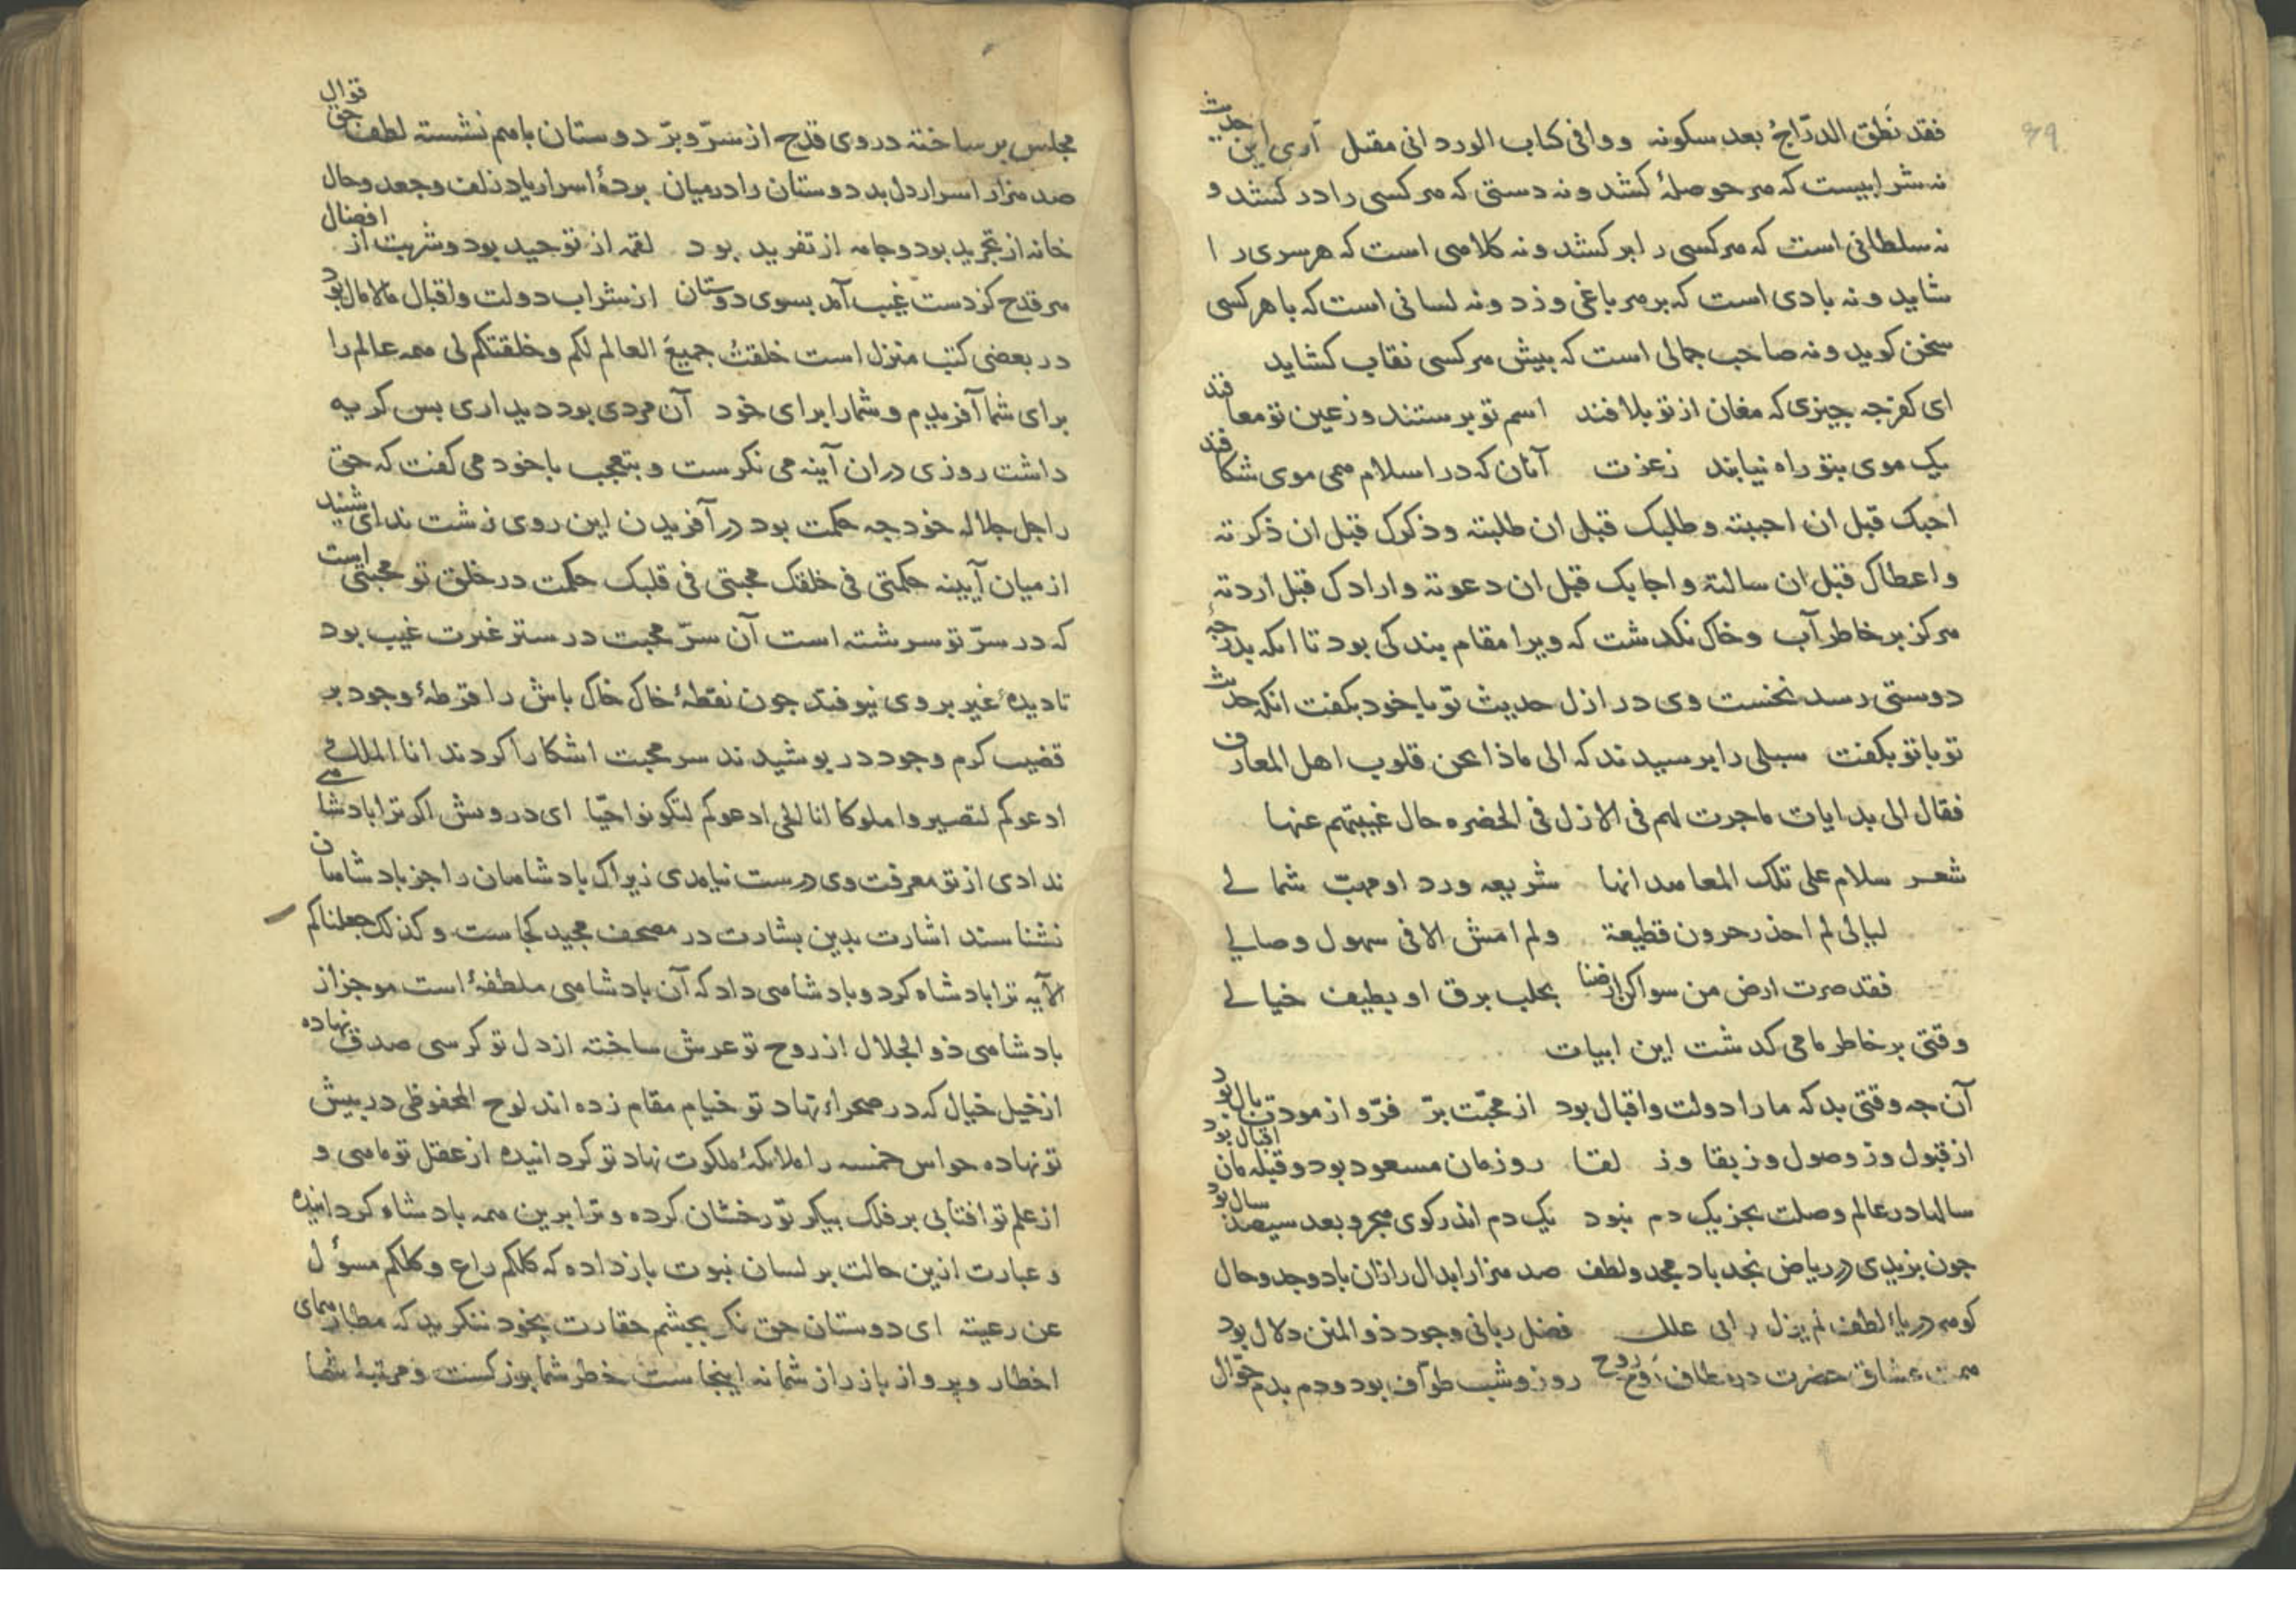 ۹۹
فقد نطق الدرّاجُ بعد سکونه ووافی کتاب الورد انی مقبل آری این حدیث
نه شرابیست که هر حوصلهٔ کشد و نه دستی که هر کسی را در کشد و
نه سلطانی است که هر کسی را بر کشد و نه کلامی است که هر سری را
شاید و نه بادی است که بر هر باغی وزد و نه لسانی است که با هر کسی
سخن کوید و نه صاحب جمالی است که بیش هر کسی نقاب کشاید
ای کفر جه جیزی که مغان از تو بلافند اسم تو برستند و ز عین تو معافند
یک موی بتو راه نیابند ز عزت آنان که در اسلام همی موی شکافند
احبک قبل ان احببته وطلبک قبل ان طلبته وذکرک قبل ان ذکرته
واعطاک قبل ان سالته واجابک قبل ان دعوته وارادک قبل اردته
هرکز بر خاطر آب و خاک نکدشت که ویرا مقام بندکی بود تا انکه بدرجه
دوستی رسد نخست وی در ازل حدیث تو با خود بکفت انکه حدیث
تو با تو بکفت سبلی را برسیدند که الی ماذا تحن قلوب اهل المعارف
فقال الی بدایات ما جرت لهم فی الازل فی الحضره حال غیبتهم عنها
شعر سلام علی تلک المعاهد انها شریعه ورد او مهبّ شمالی
لیالی لم احذر حرون قطیعة ولم امش الا فی سهول وصالی
فقد صرت ارض من سواکن ارضنا بخلب برق او بطیف خیالی
وقتی بر خاطر ما می کدشت این ابیات
آن جه وقتی بد که ما را دولت و اقبال بود از محبّت برّ فرّ و از مودت بال بود
از قبول وز وصول وز بقا وز لقا روزمان مسعود بود و قبله مان اقبال بود
سالها در عالم وصلت بجز یک دم نبود یک دم اندر کوی هجر و بعد سیصد سال بود
جون بزیدی در ریاض نجد باد مجد و لطف صد هزار ابدال را زان باد وجد وحال
کوهر دریاء لطف لم یزل را بی علل فضل ربانی وجود ذو المنن دلال بود
همت عشاق حضرت در مطاف روح روح روز و شب طوّاف بود و دم بدم جوّال
مجلس بر ساخته در وی قدح از سرّ و برّ دوستان باهم نشسته لطف حق قوّال
صد هزار اسرار دل بد دوستان را در میان بردهٔ اسرار یاد زلف و جعد و خال
خانه از تجرید بود و جامه از تفرید بود لقمه از توحید بود و شربت از افضال
هر قدح کز دست غیب آمد بسوی دوستان از شراب دولت و اقبال مالامال بود
در بعضی کتب منزل است خلقتُ جمیعَ العالم لکم وخلقتکم لی همه عالم را
برای شما آفریدم و شما را برای خود آن مردی بود دیداری بس کریه
داشت روزی در ان آینه می نکرست و بتعجب با خود می کفت که حق
را جل جلاله خود جه حکمت بود در آفریدن این روی زشت ندای شنید
از میان آیینه حکمتی فی خلقک محبتی فی قلبک حکمت در خلق تو محبتی است
که در سرّ تو سرشته است آن سرّ محبت در ستر غیرت غیب بود
تا دیدهٔ غیر بر وی نیوفتد جون نقطهٔ خاک خاک باش را قرطهٔ وجود بر
قضیب کرم وجود در بوشیدند سر محبت اشکارا کردند انا الملک
ادعوکم لتصیروا ملوکا انا الحی ادعوکم لتکونوا احیّا ای درویش اکر ترا بادشاهی
ندادی از تو معرفت وی درست نیامدی زیراک بادشاهان را جز بادشاهان
نشناسند اشارت بدین بشارت در مصحف مجید کجاست وکذلک جعلناکم
الآیه ترا بادشاه کرد و بادشاهی داد که آن بادشاهی ملطفهٔ است موجز از
بادشاهی ذو الجلال از روح تو عرش ساخته از دل تو کرسی صدق نهاده
از خیل خیال که در صحراء نهاد تو خیام مقام زده اند لوح المحفوظی در بیش
تو نهاده حواس خمسه را ملائکهٔ ملکوت نهاد تو کردانیده از عقل تو ماهی و
از علم تو افتابی بر فلک بیکر تو رخشان کرده و ترا برین همه بادشاه کردانیده
و عبارت ازین حالت بر لسان نبوت باز داده که کلکم راع وکلکم مسؤل
عن رعیته ای دوستان حق نکر بجشم حقارت بخود ننکرید که مطار همای
اخطار و پرواز باز راز شما نه اینجاست خطر شما بزرکست و مرتبهٔ شما